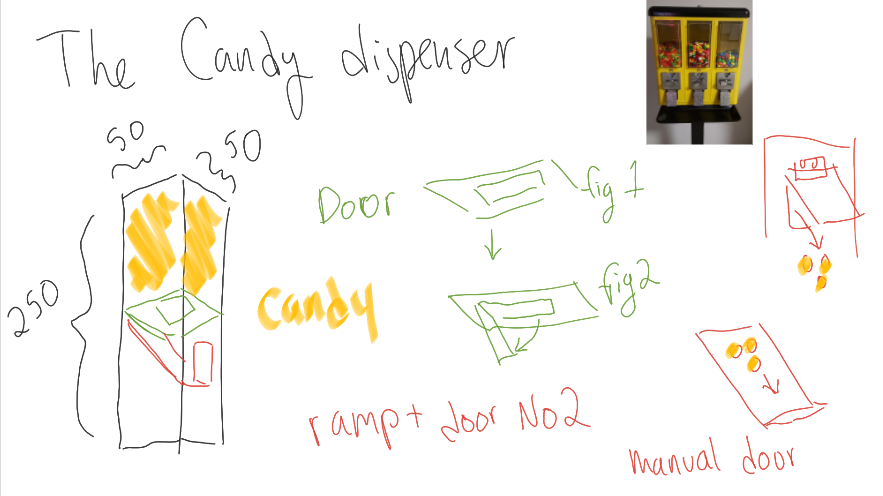 The Candy dispenser
50
250
250
Door
fig 1
Candy
fig 2
ramp + door No2
manual door